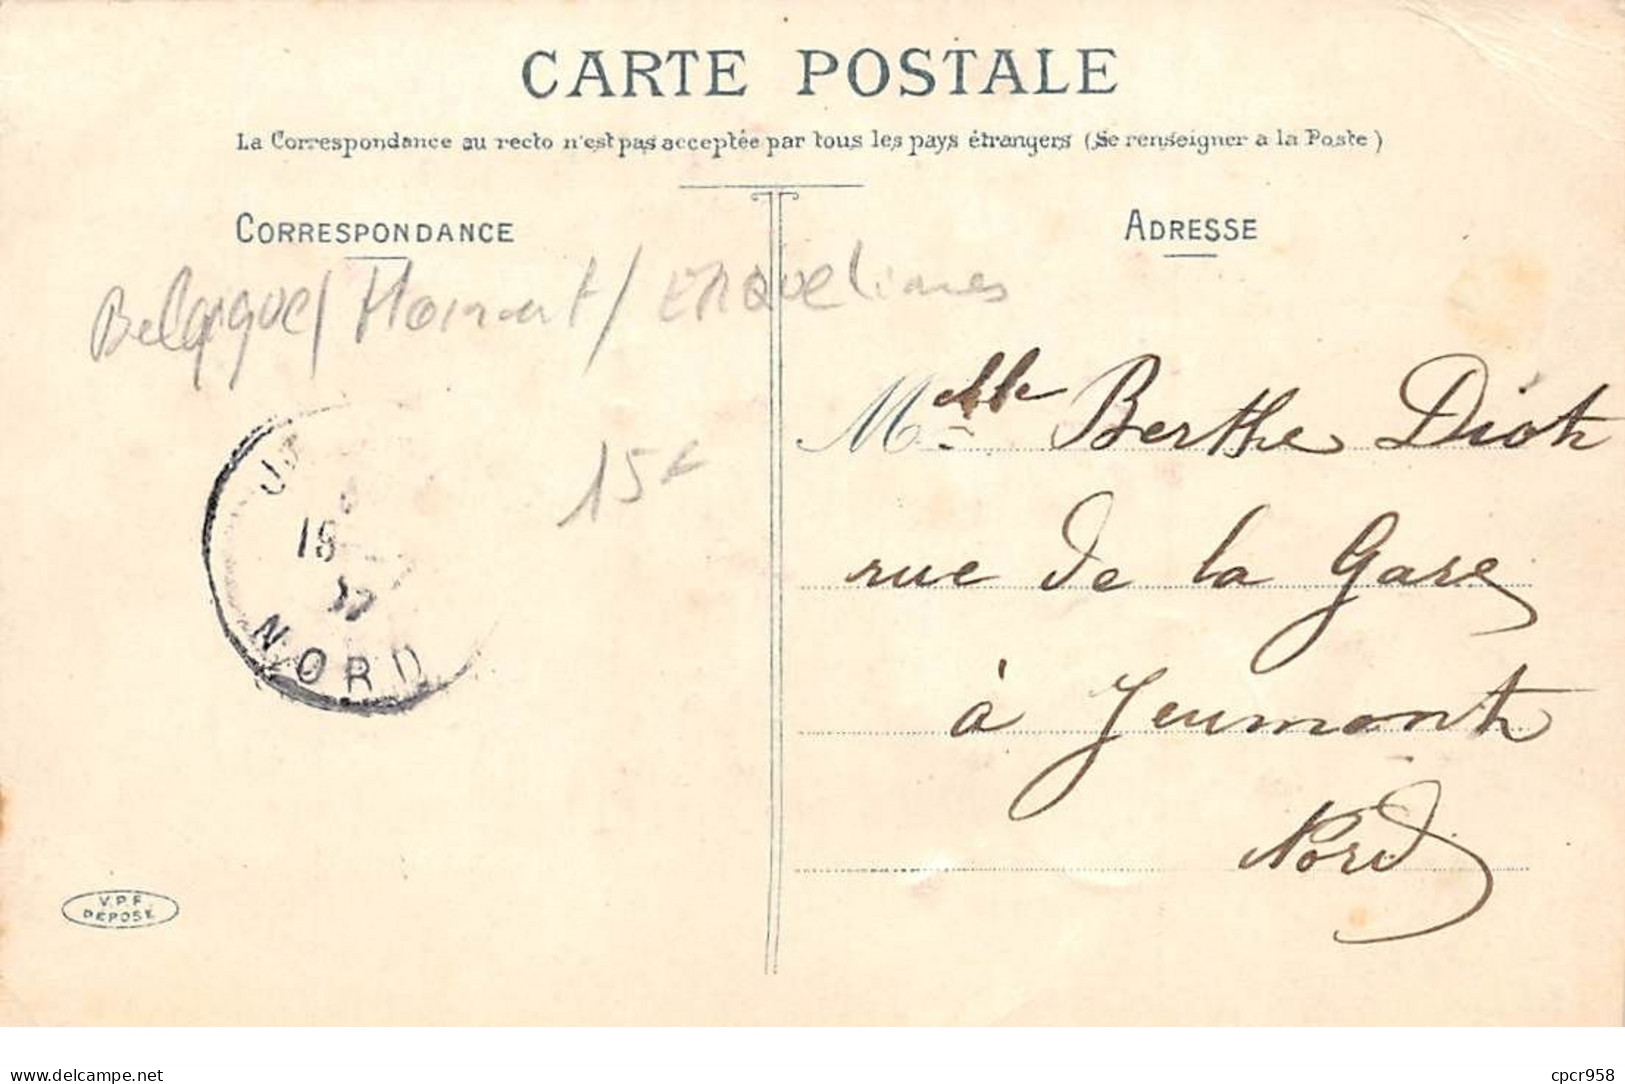 CARTE POSTALE
La Correspondance au recto n'est pas acceptée par tous les pays étrangers (Se renseigner a la Poste)
CORRESPONDANCE
ADRESSE
Belgique / Hainaut / Erquelinnes
Melle Berthe Diot
15€
rue de la Gare
à Jeumont
Nord
NORD
V.P.F.
DÉPOSÉ
delcampe.net
cpcr958